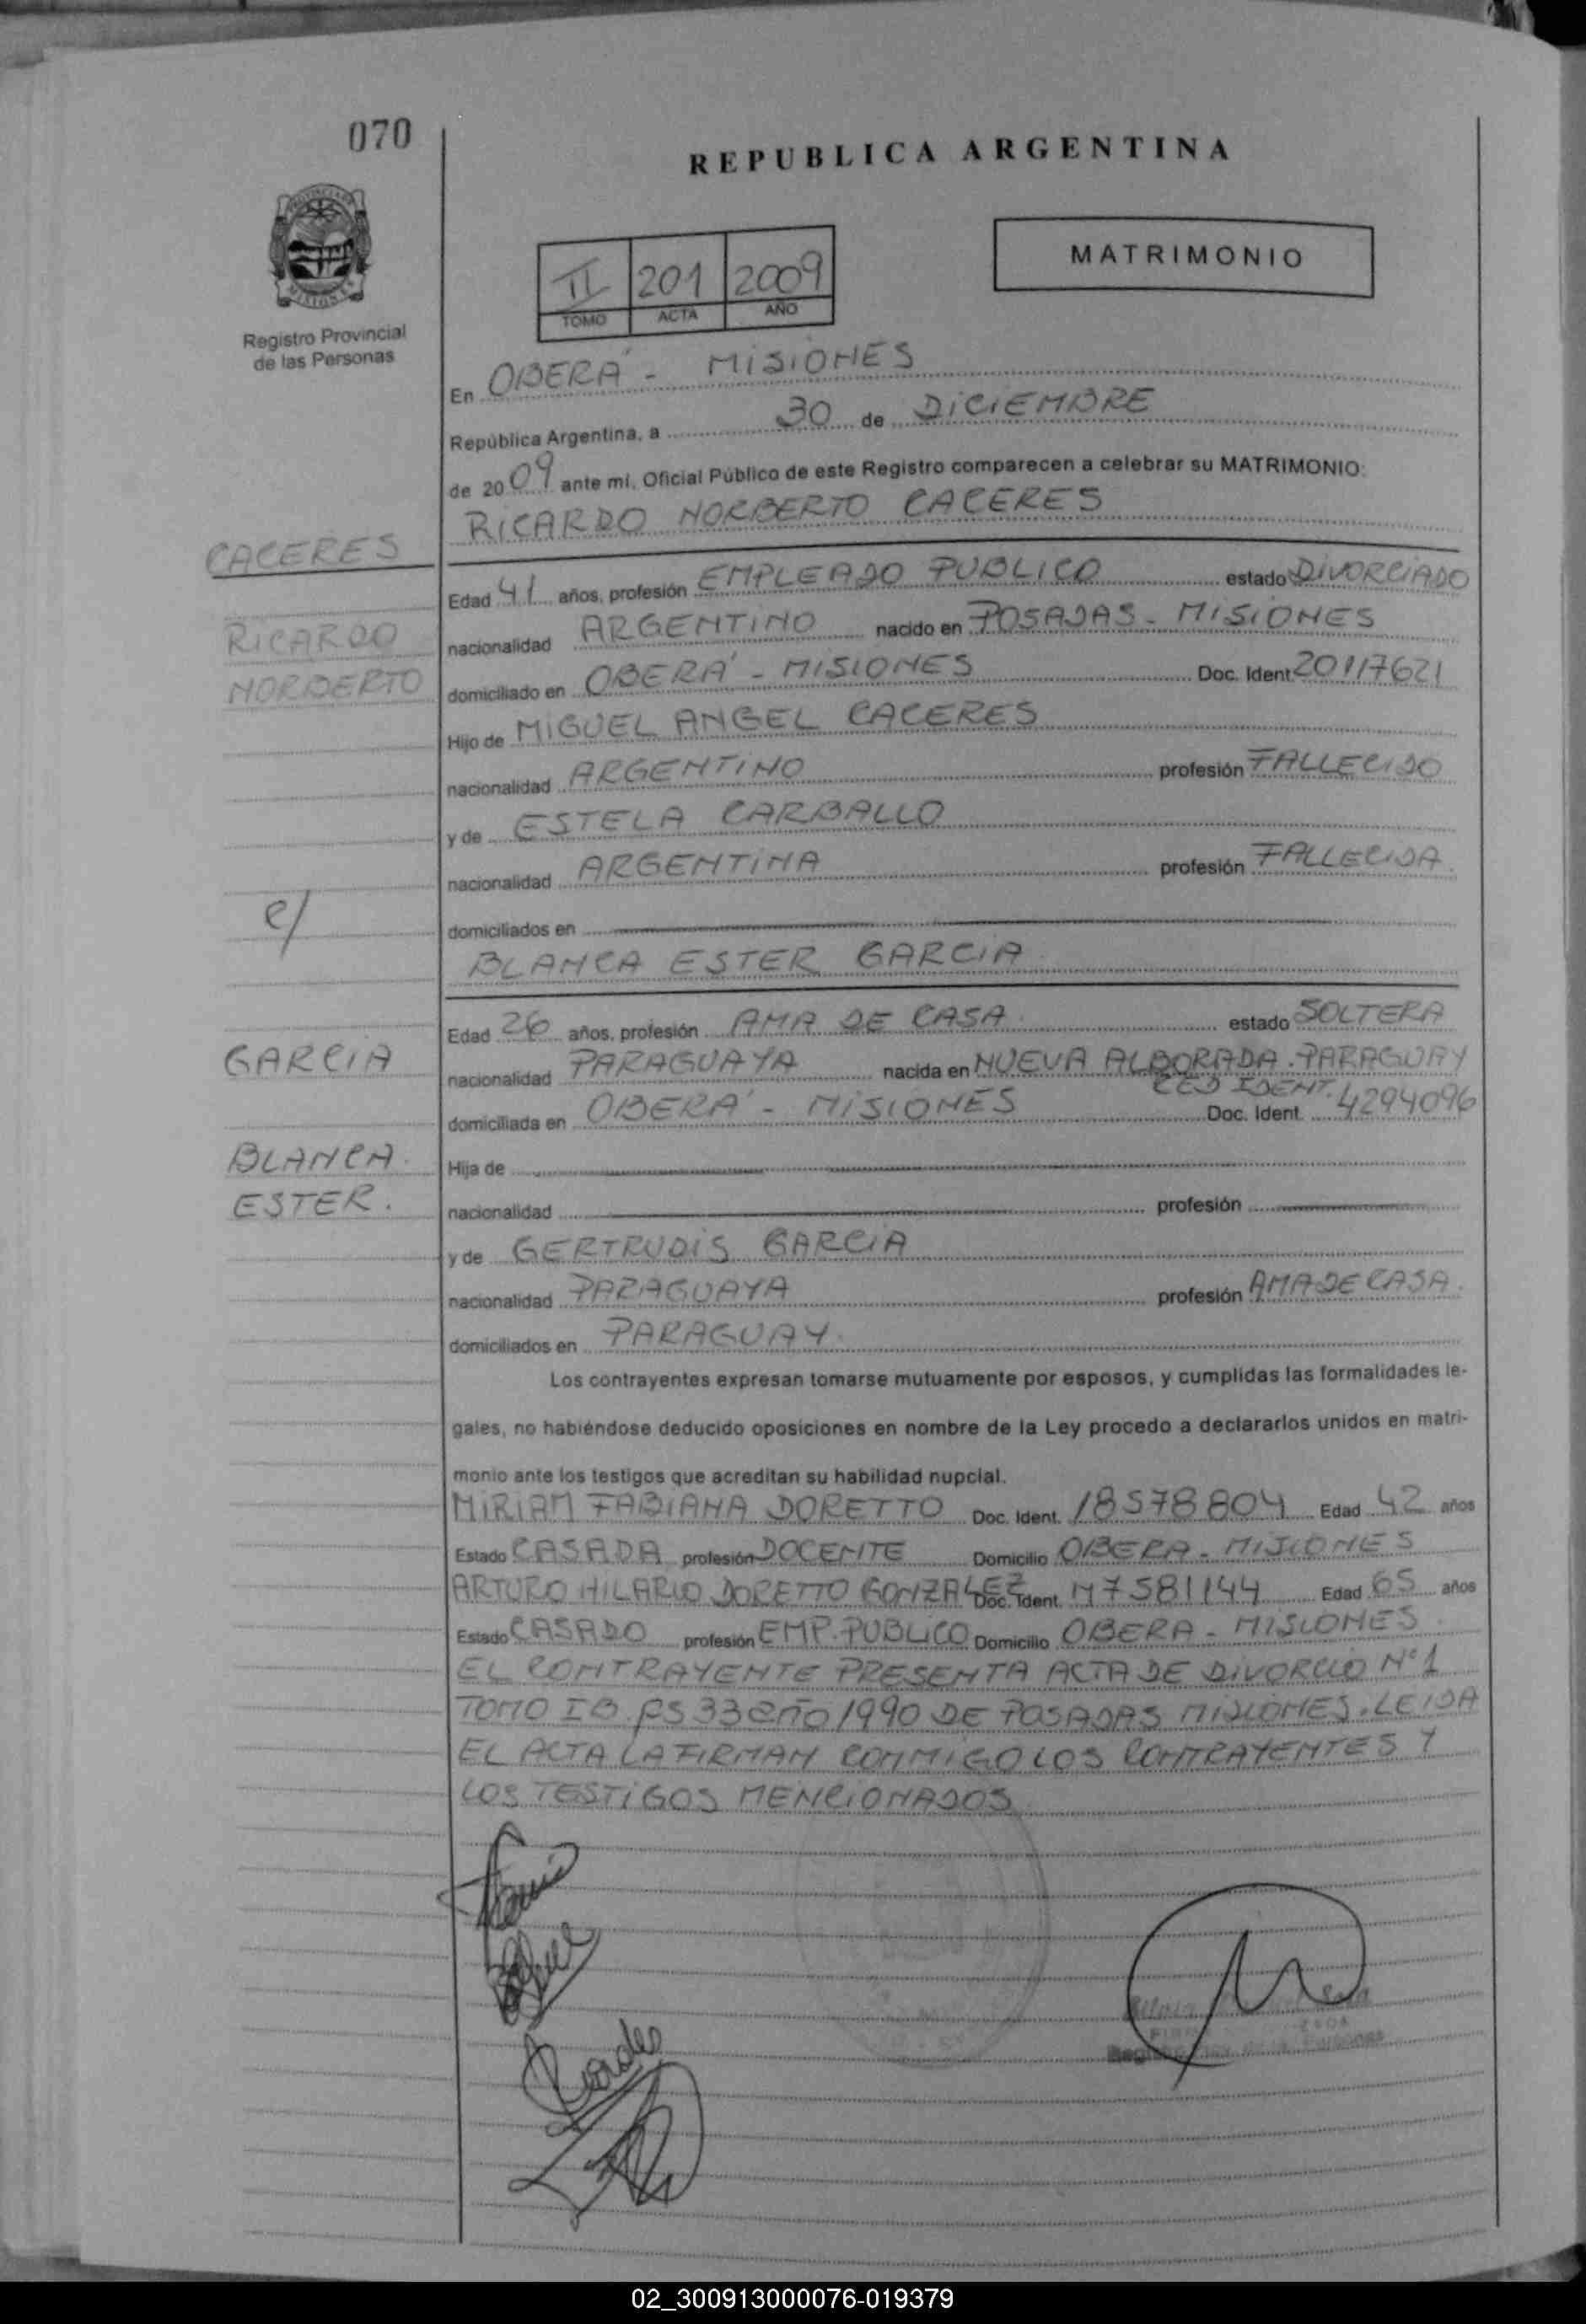 070
REPUBLICA ARGENTINA
MATRIMONIO
II 201 2009
TOMO ACTA AÑO
Registro Provincial
de las Personas
En OBERÁ - MISIONES
República Argentina, a 30 de DICIEMBRE
de 2009 ante mí, Oficial Público de este Registro comparecen a celebrar su MATRIMONIO:
RICARDO NORBERTO CACERES
CACERES
Edad 41 años, profesión EMPLEADO PUBLICO estado DIVORCIADO
RICARDO
nacionalidad ARGENTINO nacido en POSADAS - MISIONES
NORBERTO
domiciliado en OBERÁ - MISIONES Doc. Ident. 20117621
Hijo de MIGUEL ANGEL CACERES
nacionalidad ARGENTINO profesión FALLECIDO
y de ESTELA CARBALLO
nacionalidad ARGENTINA profesión FALLECIDA
c/
domiciliados en
BLANCA ESTER GARCIA
Edad 26 años, profesión AMA DE CASA. estado SOLTERA
GARCIA
nacionalidad PARAGUAYA nacida en NUEVA ALBORADA. PARAGUAY
CED IDENT.
domiciliada en OBERÁ - MISIONES Doc. Ident. 4294096
BLANCA.
Hija de
ESTER.
nacionalidad profesión
y de GERTRUDIS GARCIA
nacionalidad PARAGUAYA profesión AMA DE CASA.
domiciliados en PARAGUAY.
Los contrayentes expresan tomarse mutuamente por esposos, y cumplidas las formalidades le-
gales, no habiéndose deducido oposiciones en nombre de la Ley procedo a declararlos unidos en matri-
monio ante los testigos que acreditan su habilidad nupcial.
MIRIAM FABIANA DORETTO Doc. Ident. 18578804 Edad 42 años
Estado CASADA profesión DOCENTE Domicilio OBERA - MISIONES
ARTURO HILARIO DORETTO GONZALEZ Doc. Ident. M7581144 Edad 65 años
Estado CASADO profesión EMP. PUBLICO Domicilio OBERA - MISIONES
EL CONTRAYENTE PRESENTA ACTA DE DIVORCIO Nº1
TOMO IB FS 33 año 1990 DE POSADAS MISIONES. LEIDA
EL ACTA LA FIRMAN CONMIGO LOS CONTRAYENTES Y
LOS TESTIGOS MENCIONADOS
02_300913000076-019379